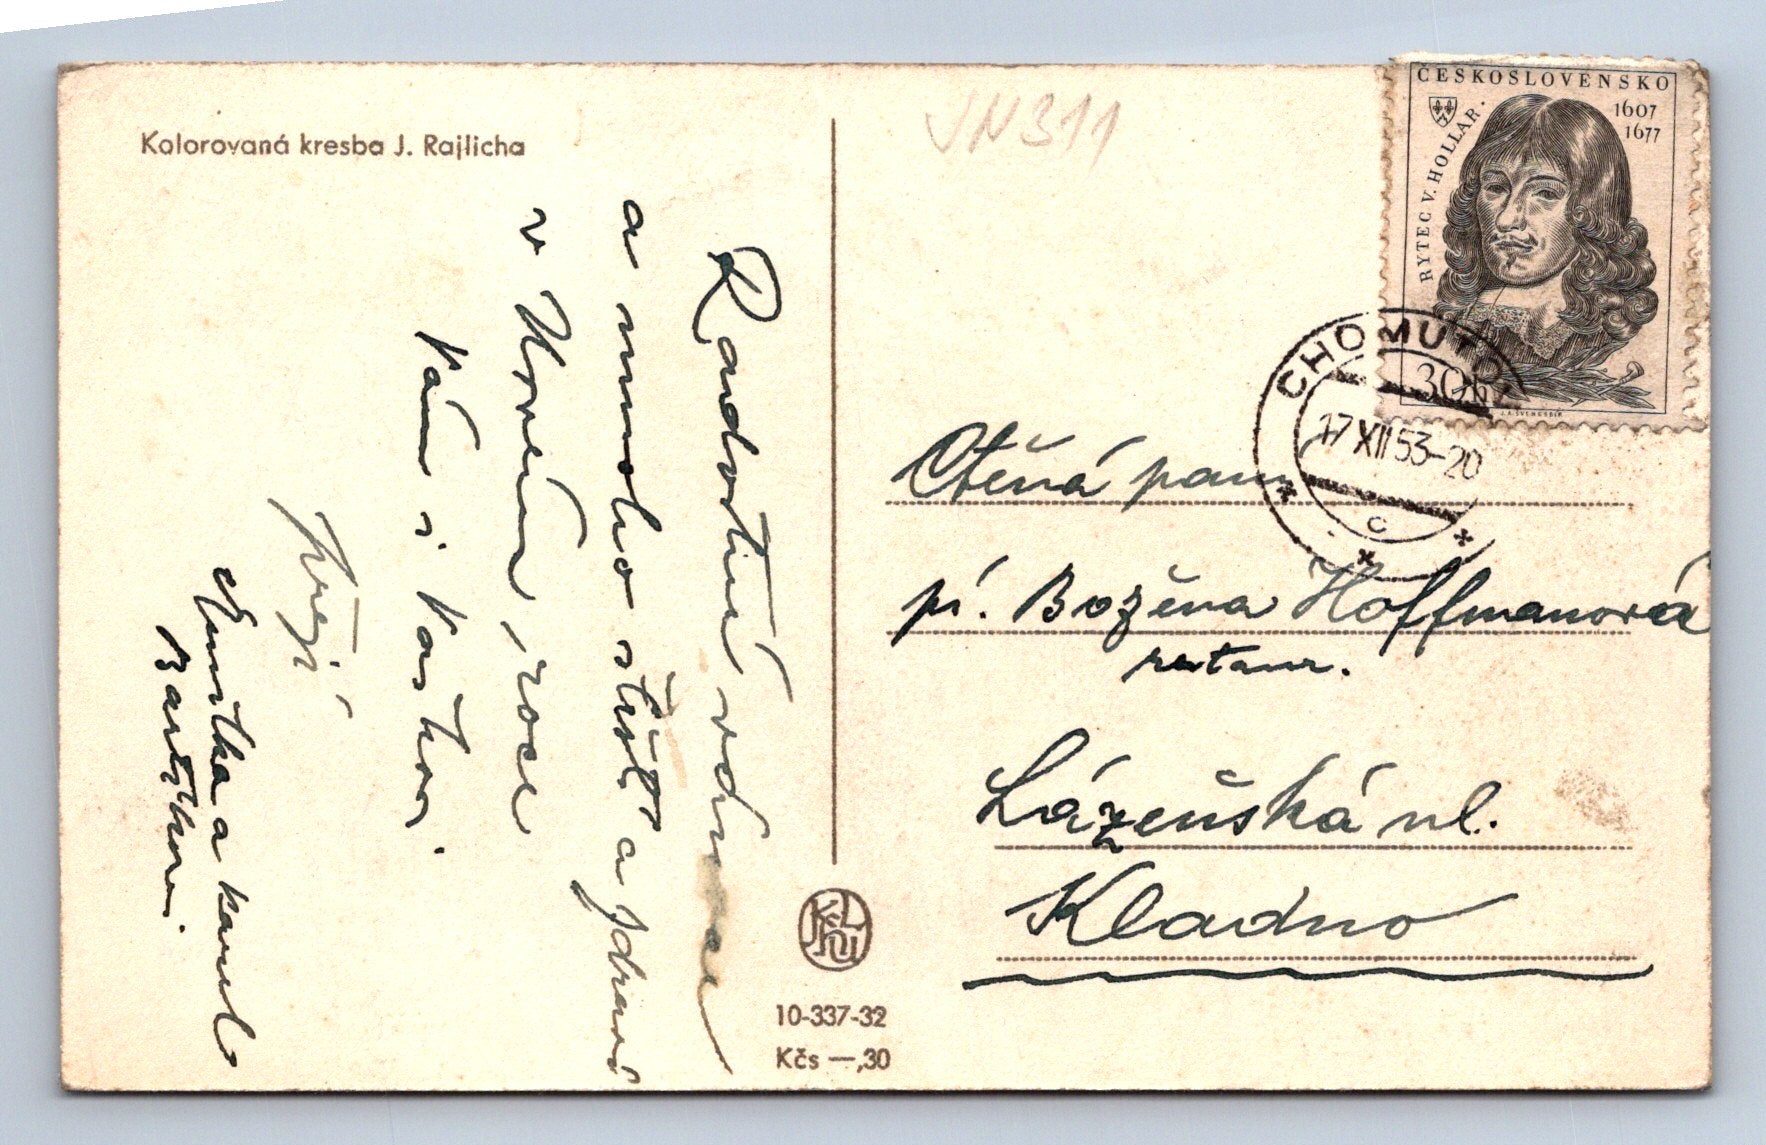 Kolorovaná kresba J. Rajlicha
Radostné vánoce
a mnoho štěstí a zdraví
v Novém roce
Vám i
přejí
a Karel
JN311
ČESKOSLOVENSKO
1607
1677
RYTEC V. HOLLAR.
30h
J.A.ŠVENGSBÍR
CHOMUTOV
17 XII 53-20
c
Ctěná paní
pí. Božena Hoffmanová
restaur.
Lázeňská ul.
Kladno
10-337-32
Kčs —,30